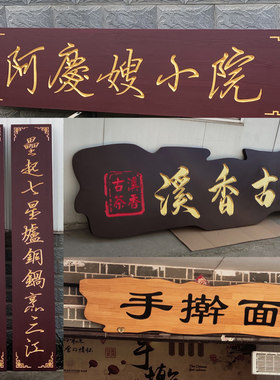 阿慶嫂小院
壘起七星爐銅鍋烹三江
古香溪
手擀面
手擀